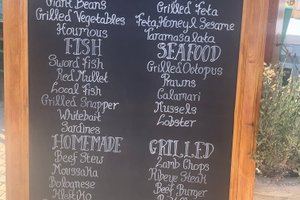 Giant Beans
Grilled Vegetables
Houmous
FISH
Sword Fish
Red Mullet
Local Fish
Grilled Snapper
Whitebait
Sardines
HOMEMADE
Beef Stew
Moussaka
Bolognese
Kleftiko
Grilled Feta
Feta, Honey & Sesame
Taramasalata
SEAFOOD
Grilled Octopus
Prawns
Calamari
Mussels
Lobster
GRILLED
Lamb Chops
Ribeye Steak
Beef Burger